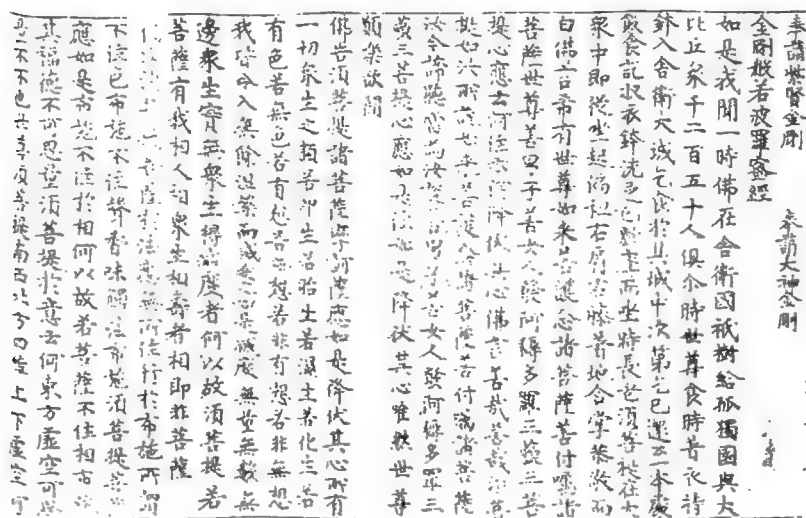 奉請定賢金剛 奉請大神金剛
金剛般若波羅蜜經
如是我聞一時佛在舍衛國祇樹給孤獨園與大
比丘衆千二百五十人俱尒時世尊食時著衣持
鉢入舍衛大城乞食於其城中次第乞已還至本處
飯食訖收衣鉢洗足已敷座而坐時長老須菩提在大
衆中即從坐起偏袒右肩右膝著地合掌恭敬而
白佛言希有世尊如来善護念諸菩薩善付囑諸
菩薩世尊善男子善女人發阿耨多羅三藐三菩
提心應云何住云何降伏其心佛言善哉善哉須菩
提如汝所說如来善護念諸菩薩善付囑諸菩薩
汝今諦聽當為汝說善男子善女人發阿耨多羅三
藐三菩提心應如是住如是降伏其心唯然世尊
願樂欲聞
佛告須菩提諸菩薩摩訶薩應如是降伏其心所有
一切衆生之類若卵生若胎生若濕生若化生若
有色若無色若有想若無想若非有想若非無想
我皆令入無餘涅槃而滅度之如是滅度無量無數無
邊衆生實無衆生得滅度者何以故須菩提若
菩薩有我相人相衆生相壽者相即非菩薩
菩薩於法應無所住行於布施所謂
不住色布施不住聲香味觸法布施須菩提菩薩
應如是布施不住於相何以故若菩薩不住相布施
其福德不可思量須菩提於意云何東方虛空可思
量不不也世尊須菩提南西北方四維上下虛空可